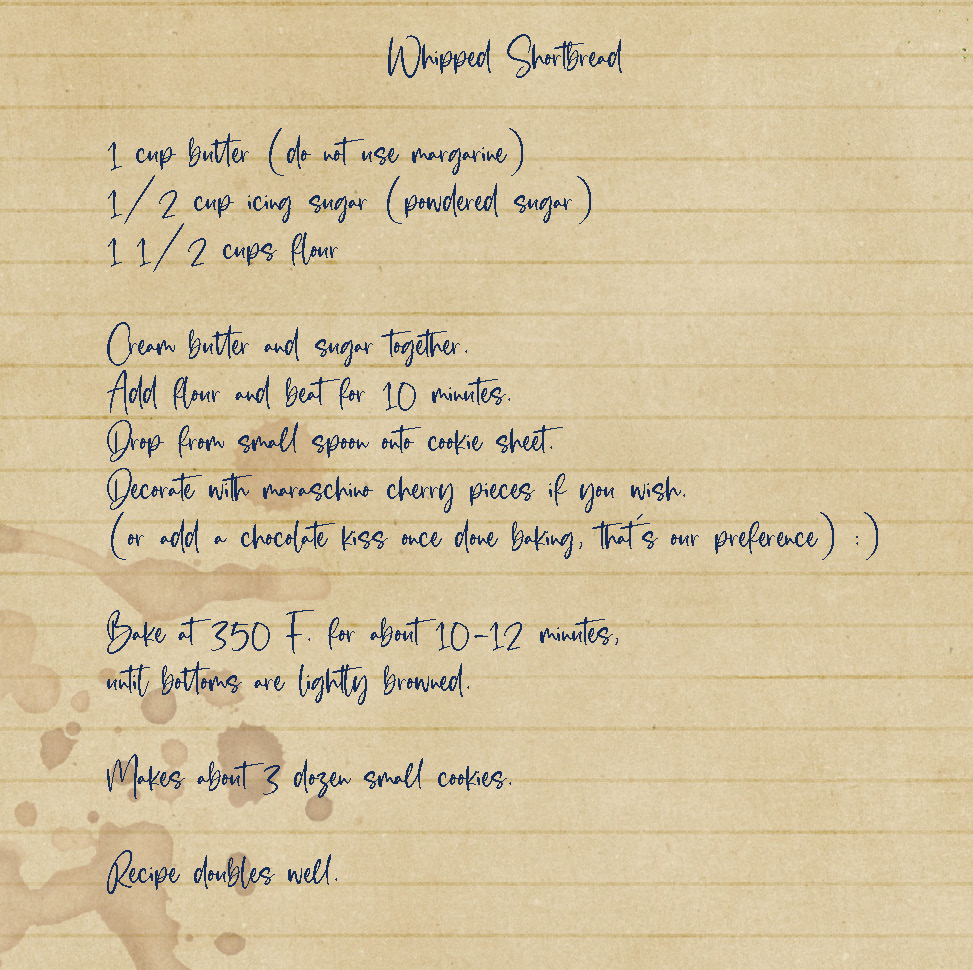 Whipped Shortbread
1 cup butter (do not use margarine)
1/2 cup icing sugar (powdered sugar)
1 1/2 cups flour
Cream butter and sugar together.
Add flour and beat for 10 minutes.
Drop from small spoon onto cookie sheet.
Decorate with maraschino cherry pieces if you wish.
(or add a chocolate kiss once done baking, that's our preference) :)
Bake at 350 F. for about 10-12 minutes,
until bottoms are lightly browned.
Makes about 3 dozen small cookies.
Recipe doubles well.